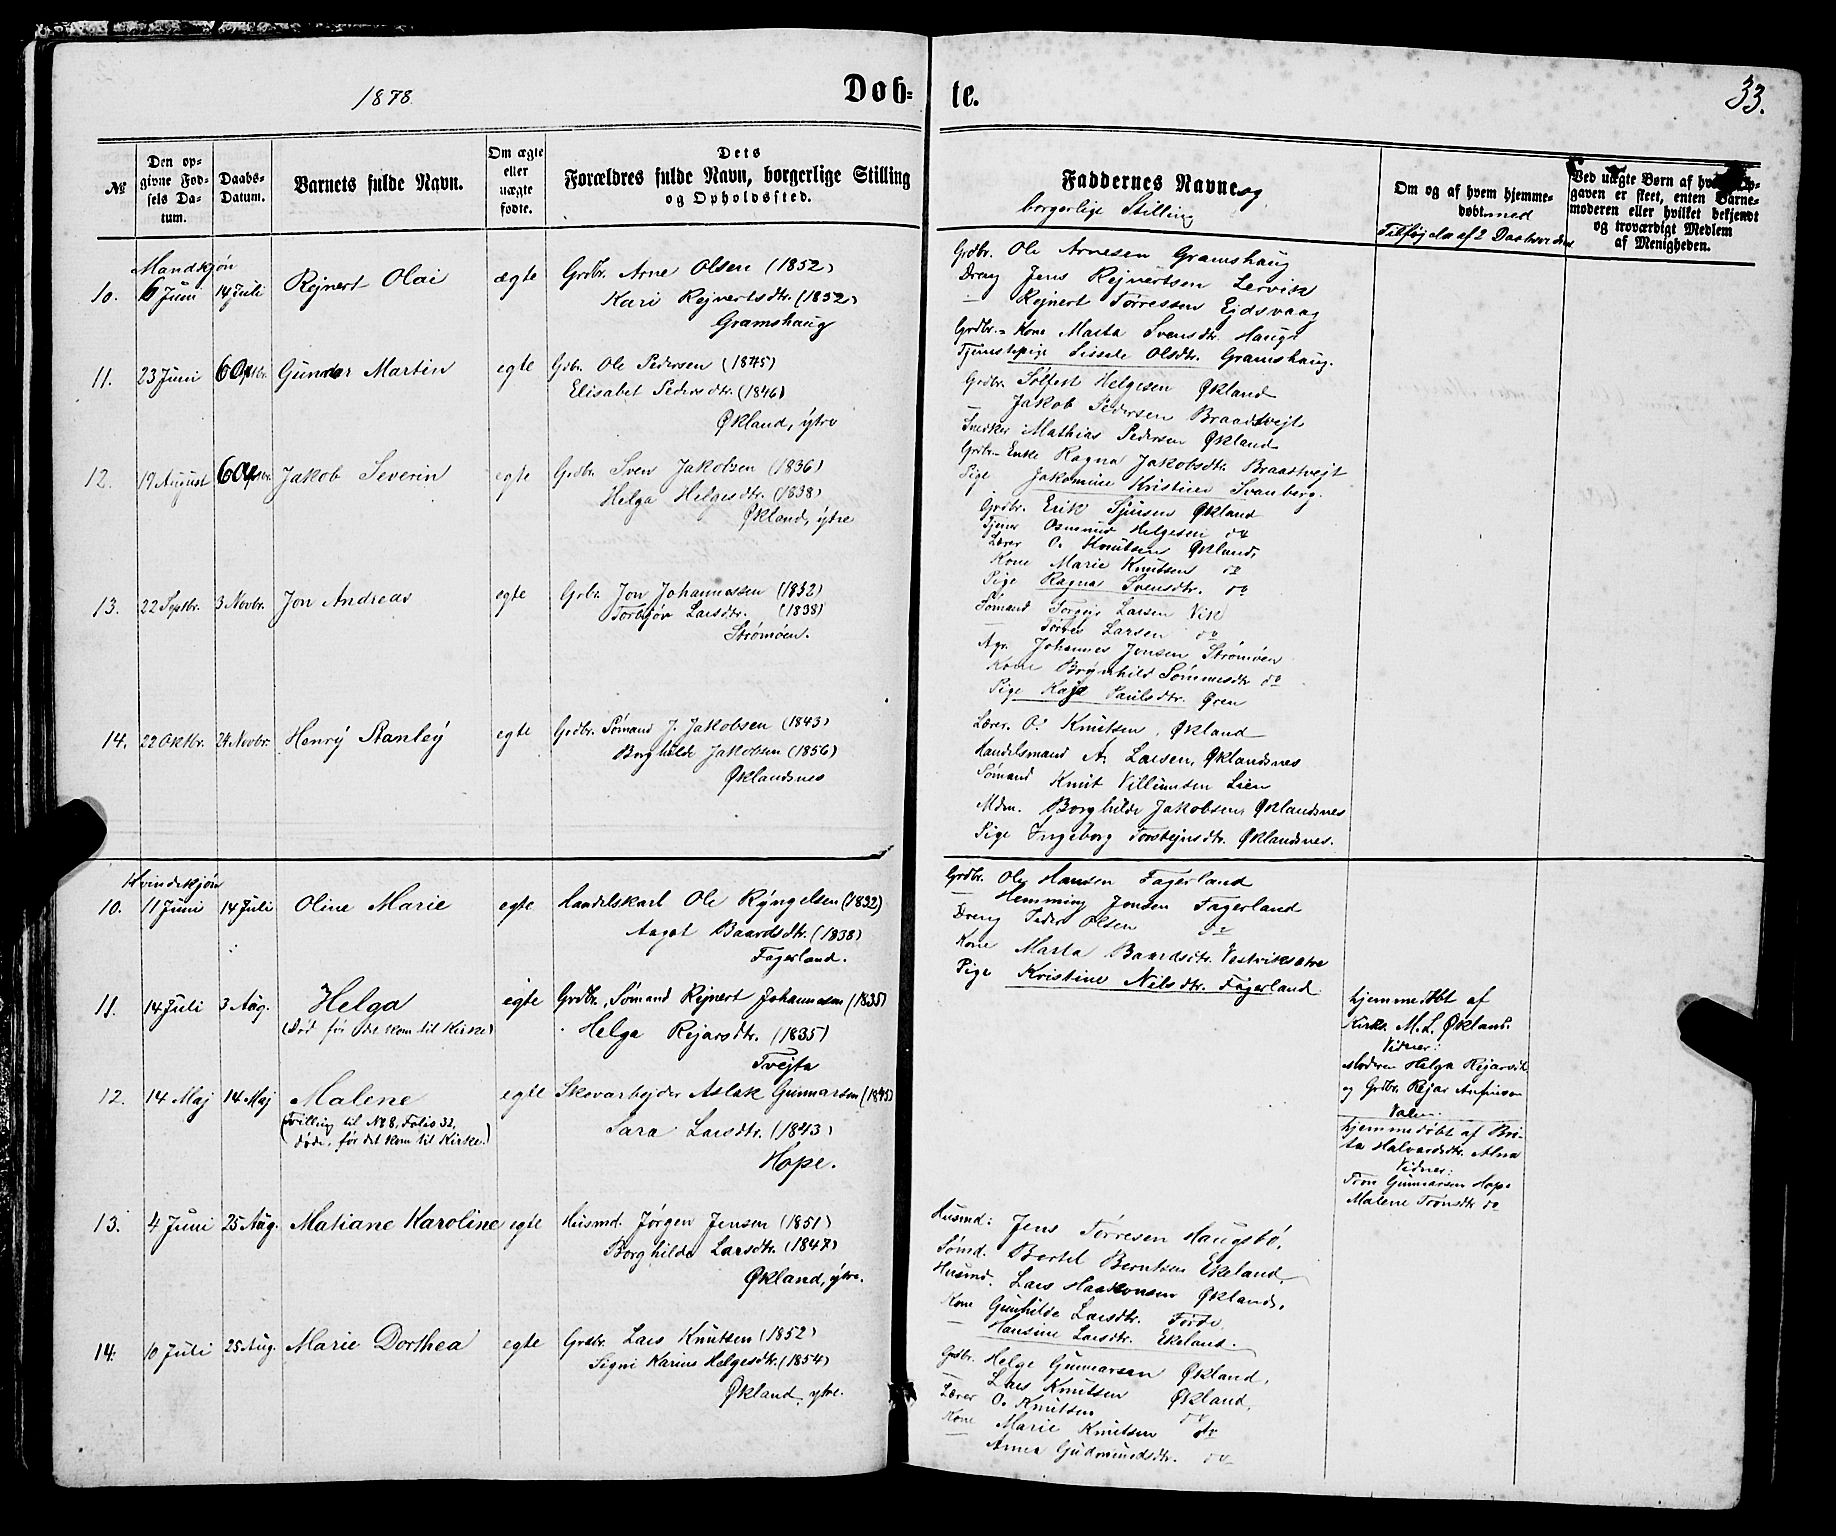 1878.
Døb-
te.
33.
№
Den opgivne Fødsels Datum.
Daabs-Datum.
Barnets fulde Navn.
Om ægte eller uægte fødte.
Dets Forældres fulde Navn, borgerlige Stilling og Opholdssted.
Faddernes Navne og
borgerlige Stilling
Om og af hvem hjemmedøbt med
Tilføjelse af 2 Daabsvidner
Ved uægte Børn af hvem Opgaven er skeet, enten Barnemoderen eller hvilket bekjendt og troværdigt Medlem af Menigheden.
Mandkjøn
10. 6 Juni 14 Juli Rejnert Olai ægte Grdbr. Arne Olsen (1852)
Kari Rejnertsdtr. (1852)
Gramshaug
Grdbr. Ole Arnesen Gramshaug
Dreng Jens Rejnertsen Lervik
— Rejnert Tørressen Ejdsvaag
Grdbr.- Kone Marta Svensdtr. Hauge
Tjenstepige Sissele Olsdtr. Gramshaug.
11. 23 Juni 6 Oktbr. Gunder Martin egte Gdbr. Ole Pedersen (1845)
Elisabet Pedersdtr. (1846)
Økland, ytre
Grdbr. Solfest Helgesen Økland
— Jakob Pedersen Braadtvejt
Snedker Mathias Pedersen Økland
Grdbr.- Enke Ragna Jakobsdtr. Braatvejt
Pige Jakomine Kristine Svanberg.
12. 19 August 6 Oktbr. Jakob Severin egte Grdbr. Sven Jakobsen (1836)
Helga Helgesdtr. (1838)
Økland, ytre
Grdbr. Erik Sjursen Økland
Tjener Osmund Helgesen do
Lærer O. Knutsen Økland,
Kone Marie Knutsen do
Pige Ragna Svensdtr. do
13. 22 Septbr. 3 Novbr. Jon Andreas egte Grbr. Jon Johannessen (1832)
Torbjør Larsdtr. (1838)
Strømøen.
Sømand Torgeir Larsen Vik
— Larsen do
Johannes Jensen Strømøen
Kone Brynhild Sømmesdtr do
Pige Kaja Paulsdtr. Øren
14. 22 Oktbr. 24 Novbr. Henrý Stanleý egte Grdbr. Sømand J. Jakobsen (1843)
Borghilde Jakobsen (1856)
Øklandsnes
Lærer O. Knutsen, Økland
Handelsmand A. Larsen, Øklandsnes
Sømand Knut Villumsen Lien
Mdm. Borghilde Jakobsen, Øklandsnes
Pige Ingeborg Torstejnsdtr. Øklandsnes.
Kvindekjøn
10. 11 Juni 14 Juli Oline Marie egte Handelskarl Ole Ryngelsen (1832)
Aagot Baardsdtr. (1838)
Fagerland.
Grdbr. Ole Hansen Fagerland
— Hemming Jonsen Fagerland
Dreng Peder Olsen do
Kone Marta Baardsdtr. Vestrikøatre
Pige Kristine Nilsdtr. Fagerland
11. 14 Juli 3 Aug. Helga egte Grdbr. Sømand Rejnert Johannesen (1835)
(Død før det kom til Kirke) Helga Rejarsdtr. (1835)
Tvejta
hjemmedøbt af
Kirks. M. L. Økland.
Vidner:
Moderen Helga Rejarsd.
og Grdbr. Rejar Anfinsen
Valen.
12. 14 Maj 14 Maj Malene egte Skovarbejder Aslak Gunnarsen (1845)
(Tvilling til No 8, Folio 32,
døde, før det kom til Kirke.)
Sara Larsdtr. (1843)
Hope.
hjemmedøbt af Bri-
ta Halvardsdtr. Alna
Vidner:
Tron Gunnarsen Hope
Malene Tronsdtr do
13. 4 Juni 25 Aug. Matiane Karoline egte Husmd. Jørgen Jensen (1851)
Borghilde Larsdtr. (1847)
Økland, ytre.
Husmd: Jens Tørresen Haugsbø,
Sømd. Bertel Berntsen Ekeland,
Husmd. Lars Haakonsen Økland,
Kone Gunhilde Larsdtr. Førde
— Hansine Larsdtr. Ekeland.
14. 10 Juli 25 Aug. Marie Dorthea egte Grdbr. Lars Knutsen (1852)
Signi Karine Helgesdtr. (1854)
Økland, ytre.
Grdbr. Helge Gunnarsen Økland,
— Lars Knutsen Økland,
Lærer O. Knutsen do
Kone Marie Knutsen do
— Anna Gudmundsdtr. do